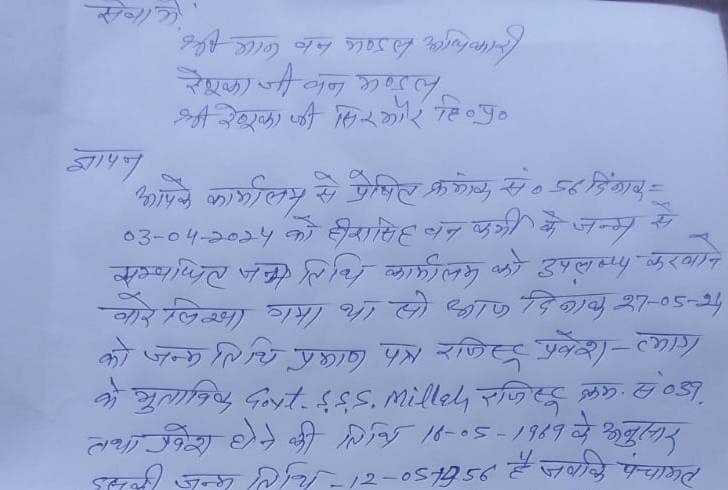 सेवा में,
श्री मान वन मण्डल अधिकारी
रेणुका जी वन मण्डल
श्री रेणुका जी सिरमौर हि०प्र०
ज्ञापन
आपके कार्यालय से प्रेषित क्रमांक सं० 56 दिनांक =
03-04-2024 को हीरासिंह वन कर्मी के जन्म से
सम्बन्धित जन्म तिथि कार्यालय को उपलब्ध करवाने
बारे लिखा गया था सो आज दिनांक 27-05-24
को जन्म तिथि प्रमाण पत्र रजिस्ट्र प्रवेश - त्याग
के मुताबिक Govt. S.S.S. Millah रजिस्ट्र क्रम. सं 039
तथा प्रवेश होने की तिथि 16-05-1969 के अनुसार
इसकी जन्म तिथि - 12-05-1956 है जबकि पंचायत